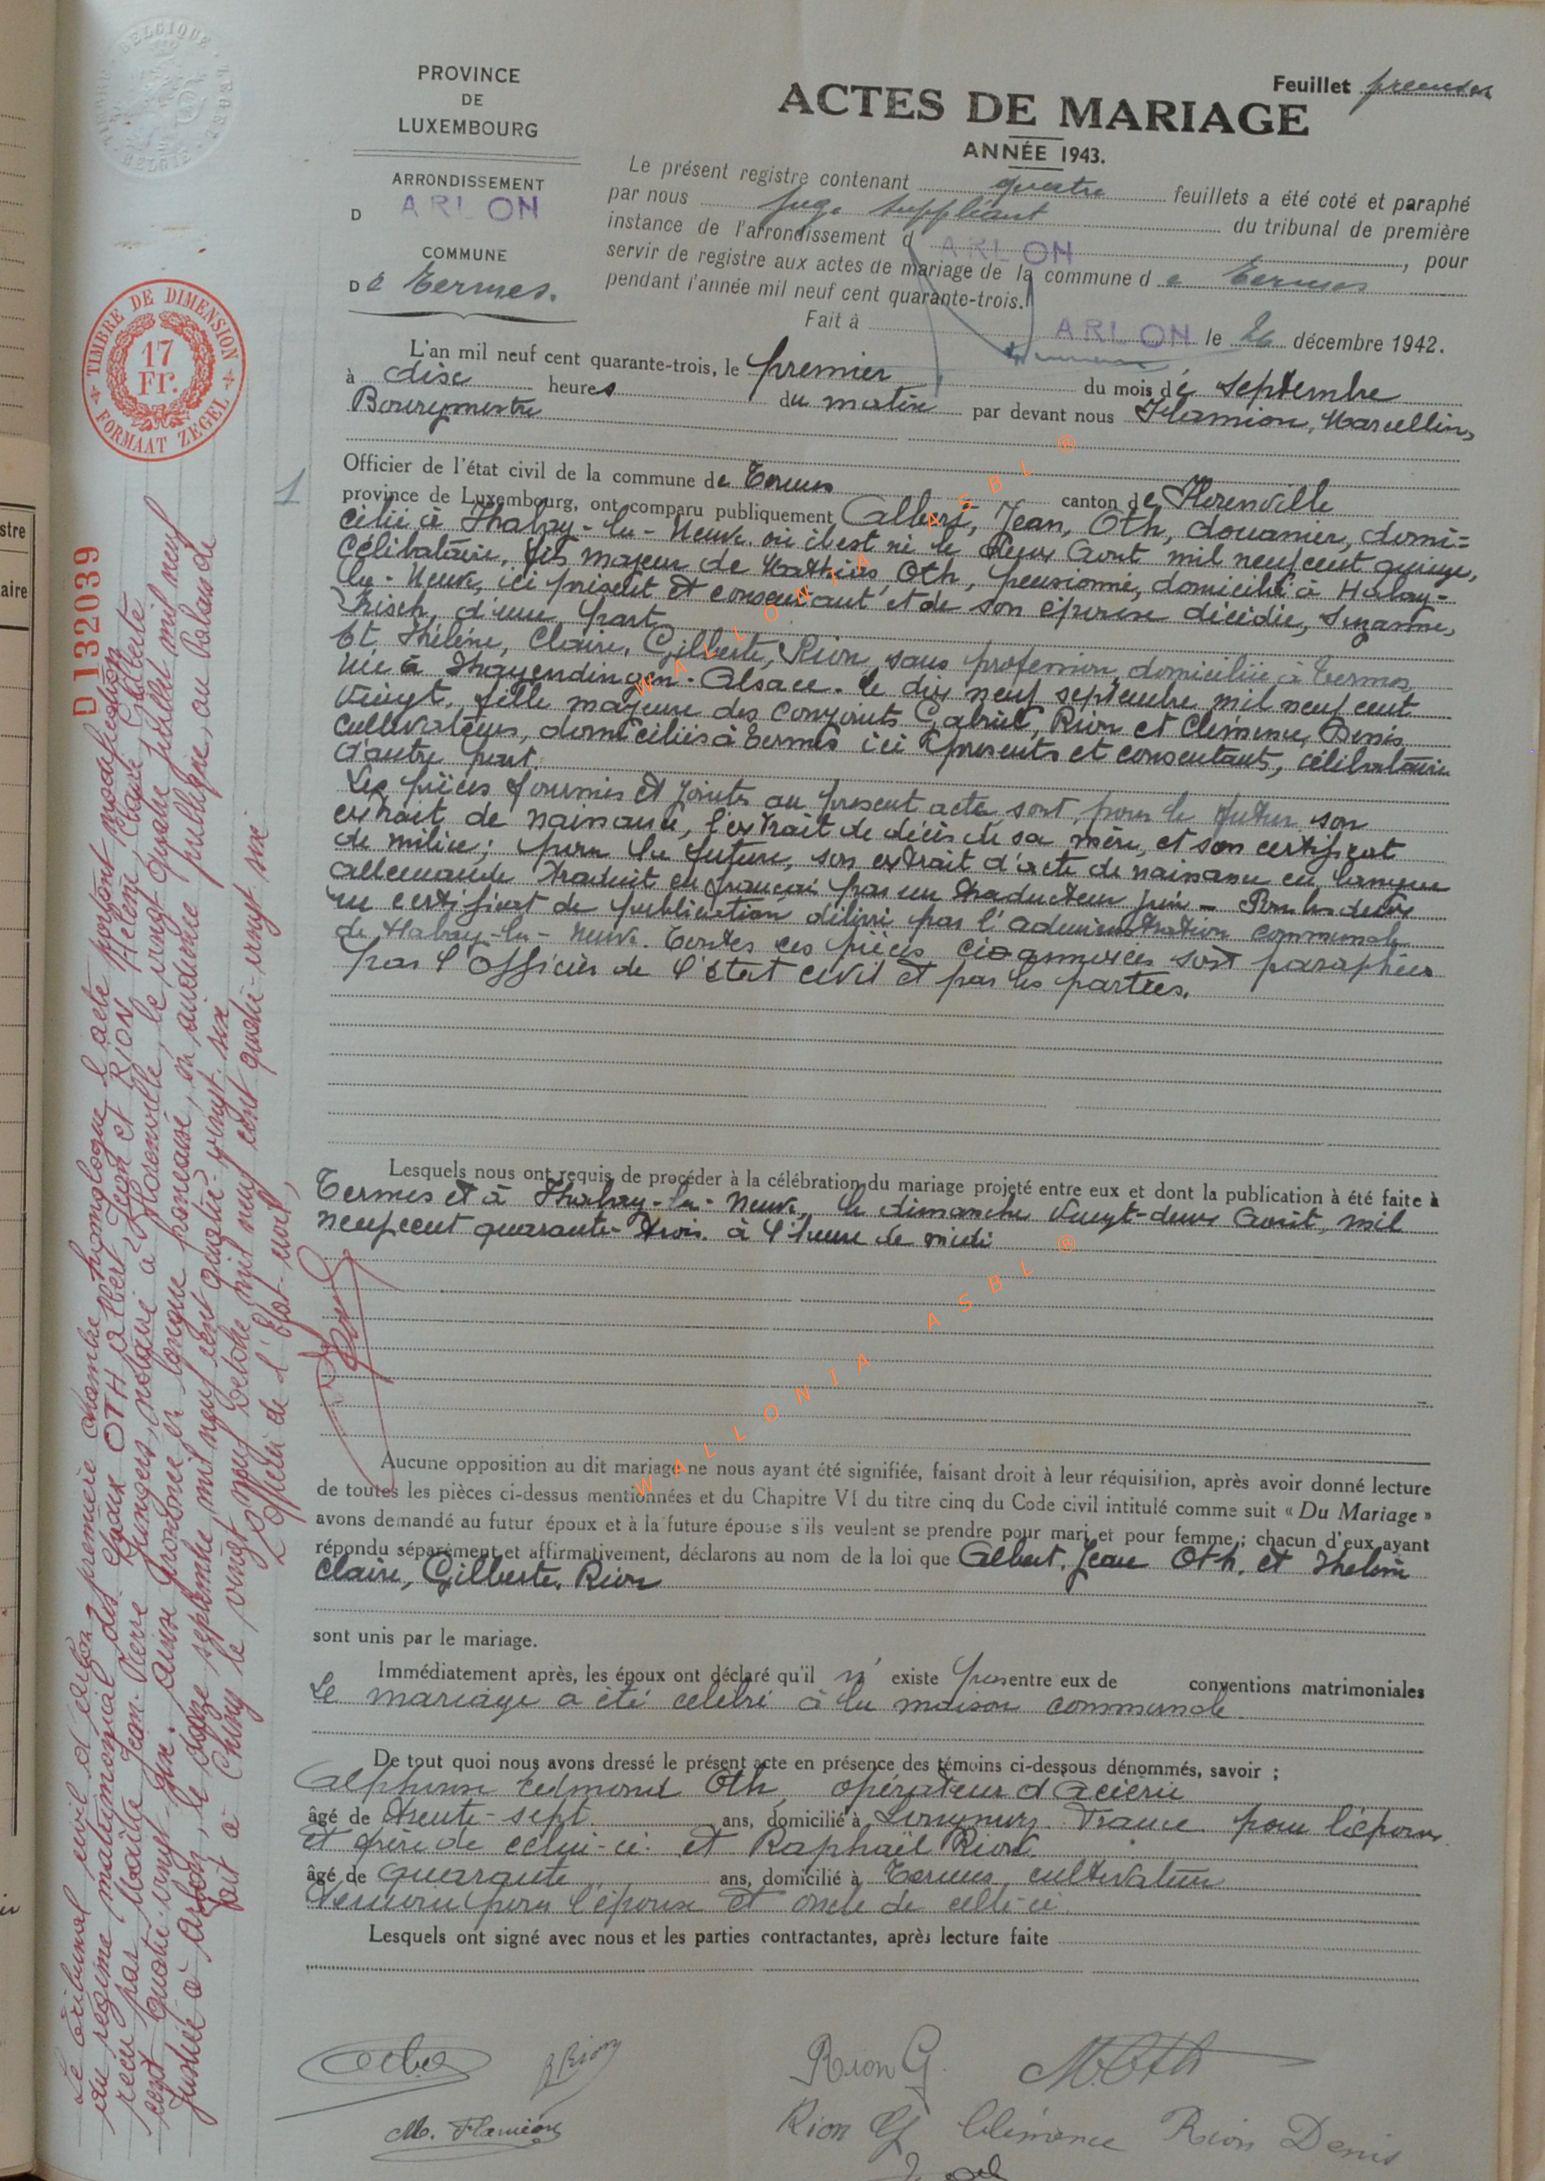 Feuillet premier
PROVINCE
DE
LUXEMBOURG
ARRONDISSEMENT
D ARLON
COMMUNE
De Termes.
ACTES DE MARIAGE
ANNÉE 1943.
Le présent registre contenant quatre feuillets a été coté et paraphé
par nous Juge suppléant du tribunal de première
instance de l'arrondissement d ARLON, pour
servir de registre aux actes de mariage de la commune d e Termes
pendant l'année mil neuf cent quarante-trois.
Fait à ARLON le 26 décembre 1942.
TIMBRE DE DIMENSION
17
Fr.
FORMAAT ZEGEL
D132039
1
L'an mil neuf cent quarante-trois, le premier du mois de septembre
à dix heures du matin par devant nous Flamion, Marcellin,
Bourgmestre
Officier de l'état civil de la commune de Termes canton de Florenville
province de Luxembourg, ont comparu publiquement Albert, Jean, Oth, douanier, domi=
cilié à Habay-la-Neuve où il est né le deux Août mil neuf cent quinze,
Célibataire, fils majeur de Mathias Oth, pensionné, domicilié à Habay-
la-Neuve, ici présent et consentant et de son épouse décédée, Suzanne,
Frisch, d'une part
Et Hélène, Claire, Gilberte, Rion, sans profession, domiciliée à Termes,
née à Hayendingen-Alsace. le dix neuf septembre mil neuf cent
vingt, fille majeure des conjoints Gabriel, Rion et Clémence, Denis
cultivateurs, domiciliés à Termes ici présents et consentants, célibataire
d'autre part.
Les pièces fournies et jointes au présent acte sont, pour le futur son
extrait de naissance, l'extrait de décès de sa mère, et son certificat
de milice; pour la future, son extrait d'acte de naissance en langue
allemande traduit en français par un traducteur juré - Pour les deux
un certificat de publication délivré par l'administration communale
de Habay-la-Neuve. Toutes ces pièces ci annexées sont paraphées
par l'Officier de l'état civil et par les parties.
Lesquels nous ont requis de procéder à la célébration du mariage projeté entre eux et dont la publication à été faite à
Termes et à Habay-la-Neuve, le dimanche vingt-deux Août, mil
neuf cent quarante-trois. à l'heure de midi
Aucune opposition au dit mariage ne nous ayant été signifiée, faisant droit à leur réquisition, après avoir donné lecture
de toutes les pièces ci-dessus mentionnées et du Chapitre VI du titre cinq du Code civil intitulé comme suit « Du Mariage »
avons demandé au futur époux et à la future épouse s'ils veulent se prendre pour mari et pour femme; chacun d'eux ayant
répondu séparément et affirmativement, déclarons au nom de la loi que Albert, Jean Oth, et Hélène
Claire, Gilberte, Rion
sont unis par le mariage.
Immédiatement après, les époux ont déclaré qu'il n'existe pas entre eux de conventions matrimoniales
Le mariage a été célébré à la maison communale.
De tout quoi nous avons dressé le présent acte en présence des témoins ci-dessous dénommés, savoir ;
Alphonse Edmond Oth, opérateur d'Aciérie
âgé de trente-sept ans, domicilié à France pour l'époux
et frère de celui-ci. et Raphaël Rion
âgé de quarante ans, domicilié à Termes, cultivateur
témoin pour l'épouse et oncle de celle-ci.
Lesquels ont signé avec nous et les parties contractantes, après lecture faite
R Rion
Rion G.
M. Oth
M. Flamion
Rion G Clémence Rion Denis
Le tribunal civil d'Arlon, première chambre, homologue l'acte portant modification
au régime matrimonial des époux OTH Albert Jean et RION Hélène Claire Gilberte
reçu par Maître Jean-Pierre Jungers, notaire à Florenville, le vingt quatre juillet mil neuf
cent quatre-vingt-six. ainsi prononcé en langue française, en audience publique, au Palais de
Justice à Arlon, le onze septembre mil neuf cent quatre-vingt-six
fait à Chiny le vingt neuf octobre mil neuf cent quatre-vingt six
L'officier de l'Etat-civil,
WALLONIA ASBL ®
WALLONIA ASBL ®